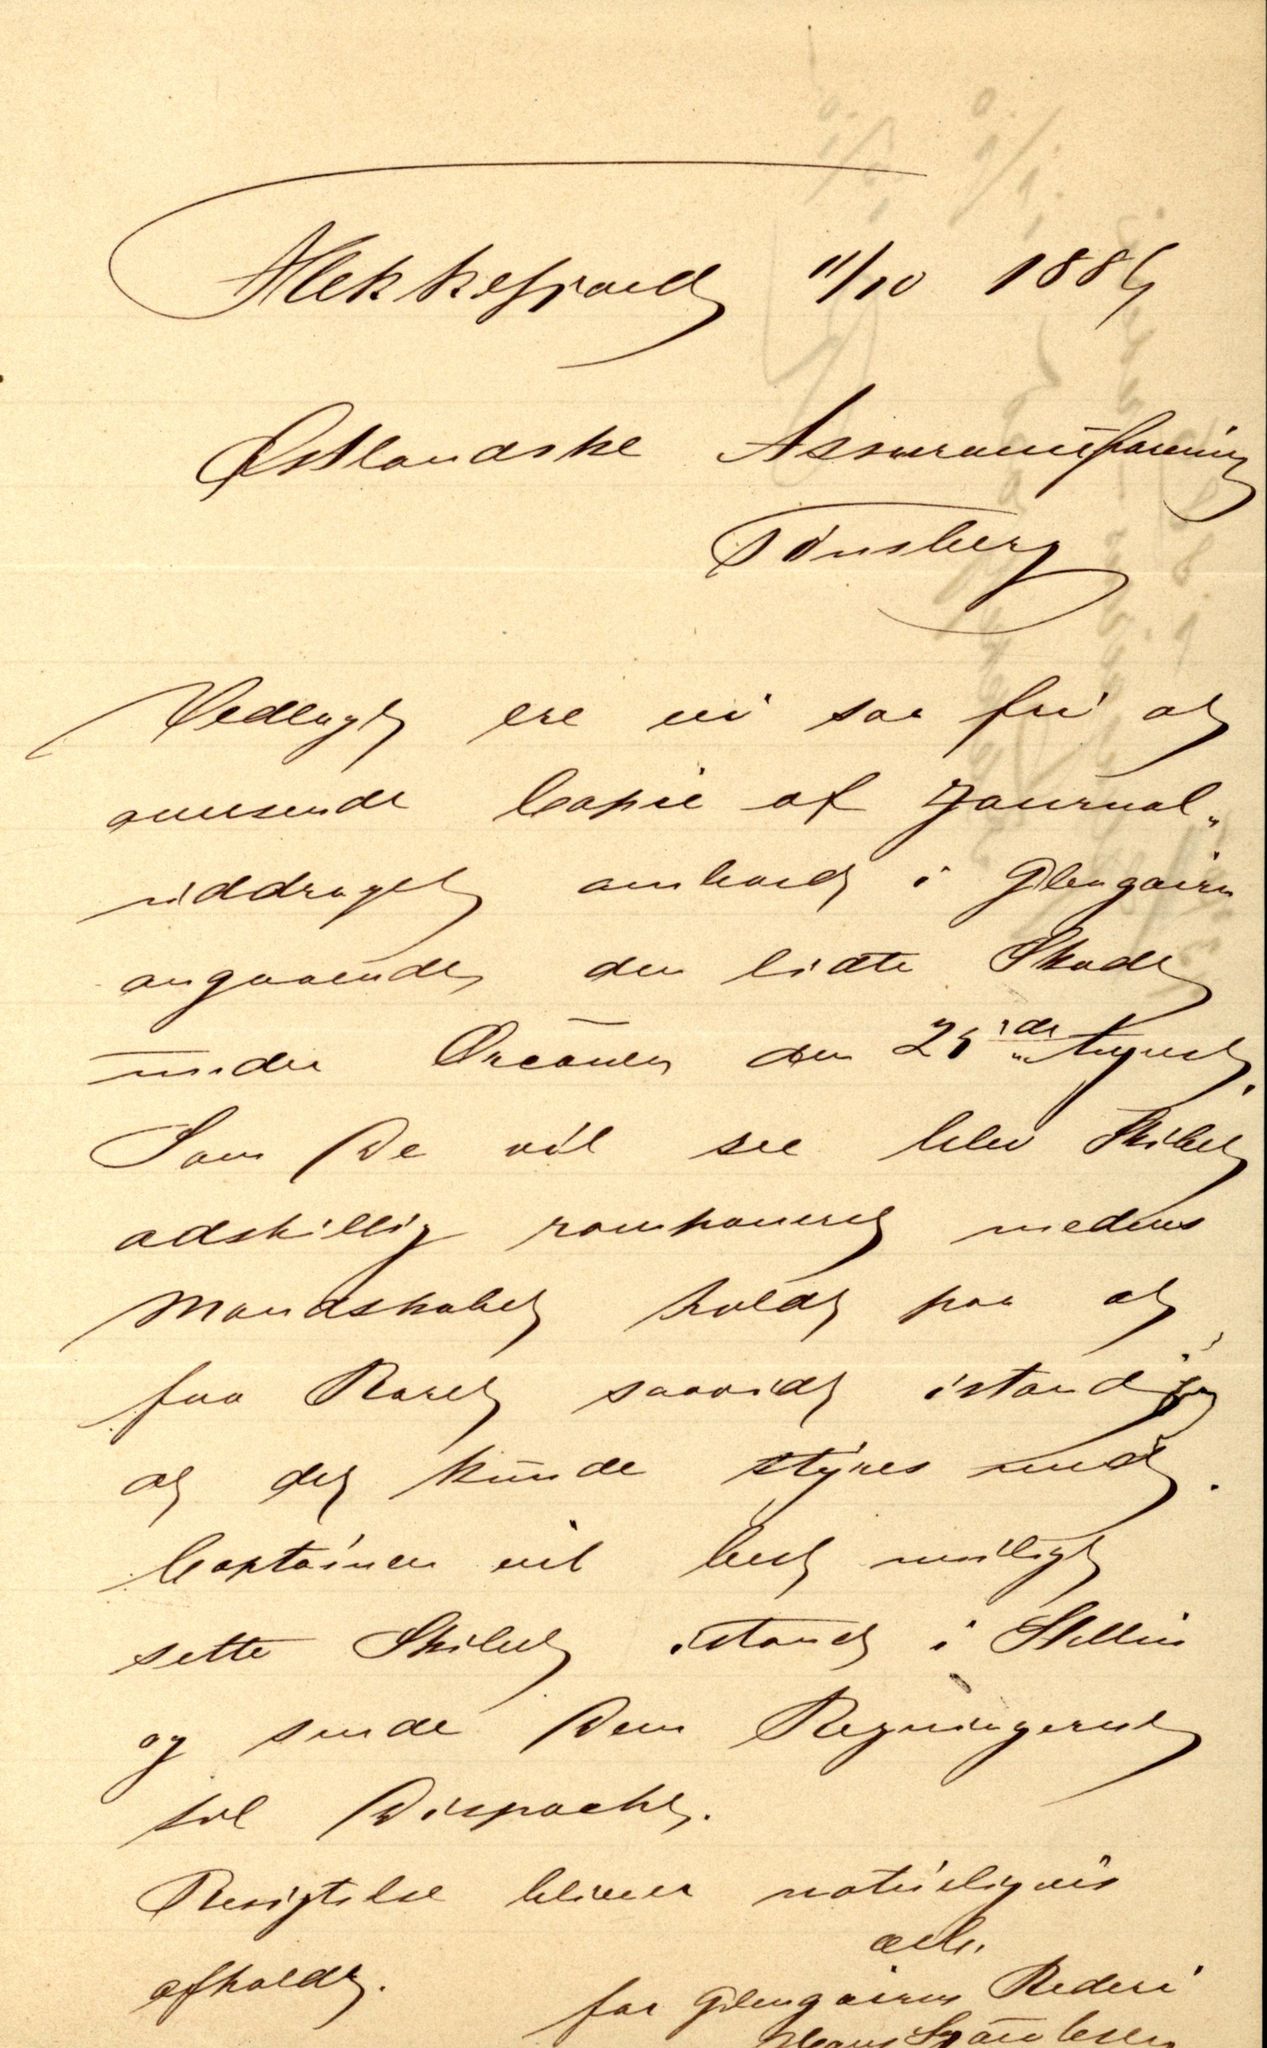 Flekkefjord 11/10 1885
Østlandske Assuranceforening
Tønsberg
Vedlagt ere vi saa fri at
oversende Copie af Journal„
uddraget ombord i Glengairn
angaaende den lidte Skade
under Orcanen den 25de August.
Som De vil see blev Skibet
adskillig ramponeret medens
Mandskabet holdt paa at
faa Roret saavidt istand
at det kunde styres med.
Captainen vil best muligt
sette Skibet istand i Stettin
og sende Dem Regningerne
til Dispache.
Besigtelse bliver naturligvis
afholdt.
ærb.
for Glengairns Rederi